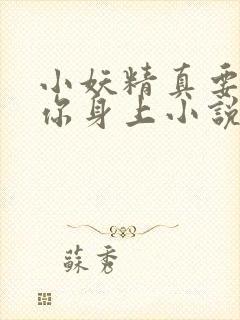 小妖精真要
你身上小說
蘇秀